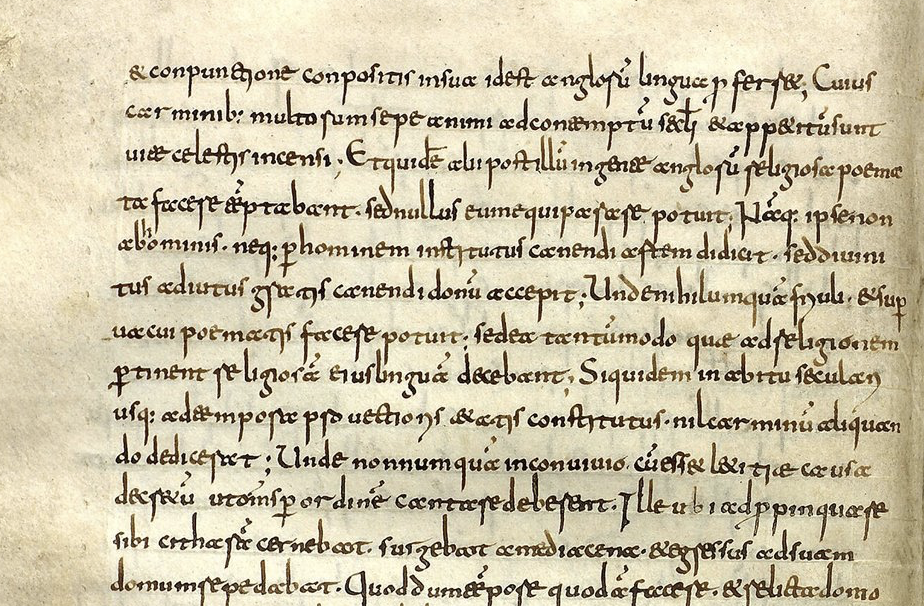 & conpunctione conpositis insua idest anglosũ lingua pferr&; Cuius
carminib; multosum sepe animi adcontemptũ sęcłi &app&itũsunt
uitae celestis incensi; Etquidẽ alii postillũ ingente anglosũ religiosa poema
ta facere tẽptabant. sednullus eumequiparare potuit; Nãq; ipsenon
abhominis. neq; ꝑhominem institutus canendi artem didicit. seddiuini
tus adiutus gratis canendi donũ accepit; Undenihilumquã friuoli. &suꝑ
uacui poematis facere potuit. sedea tantũmodo quae adreligionem
ꝑtinent religiosã eiuslinguã decebant; Siquidem in abitu seculari
usq; adtempora prouectioris &atis constitutus. nilcarminũ aliquan
do dedicerat; Unde nonnumquã inconuiuio. cũess& l&itiae causa
decr&ũ utomsꝑordinẽ cantaredeberent. Ille ubi adppinquare
sibi citharã cernebat. surgebat amediacena. &egressus adsuam
domumrepedabat. Quoddumtẽpore quodã faceret. &relictadomo